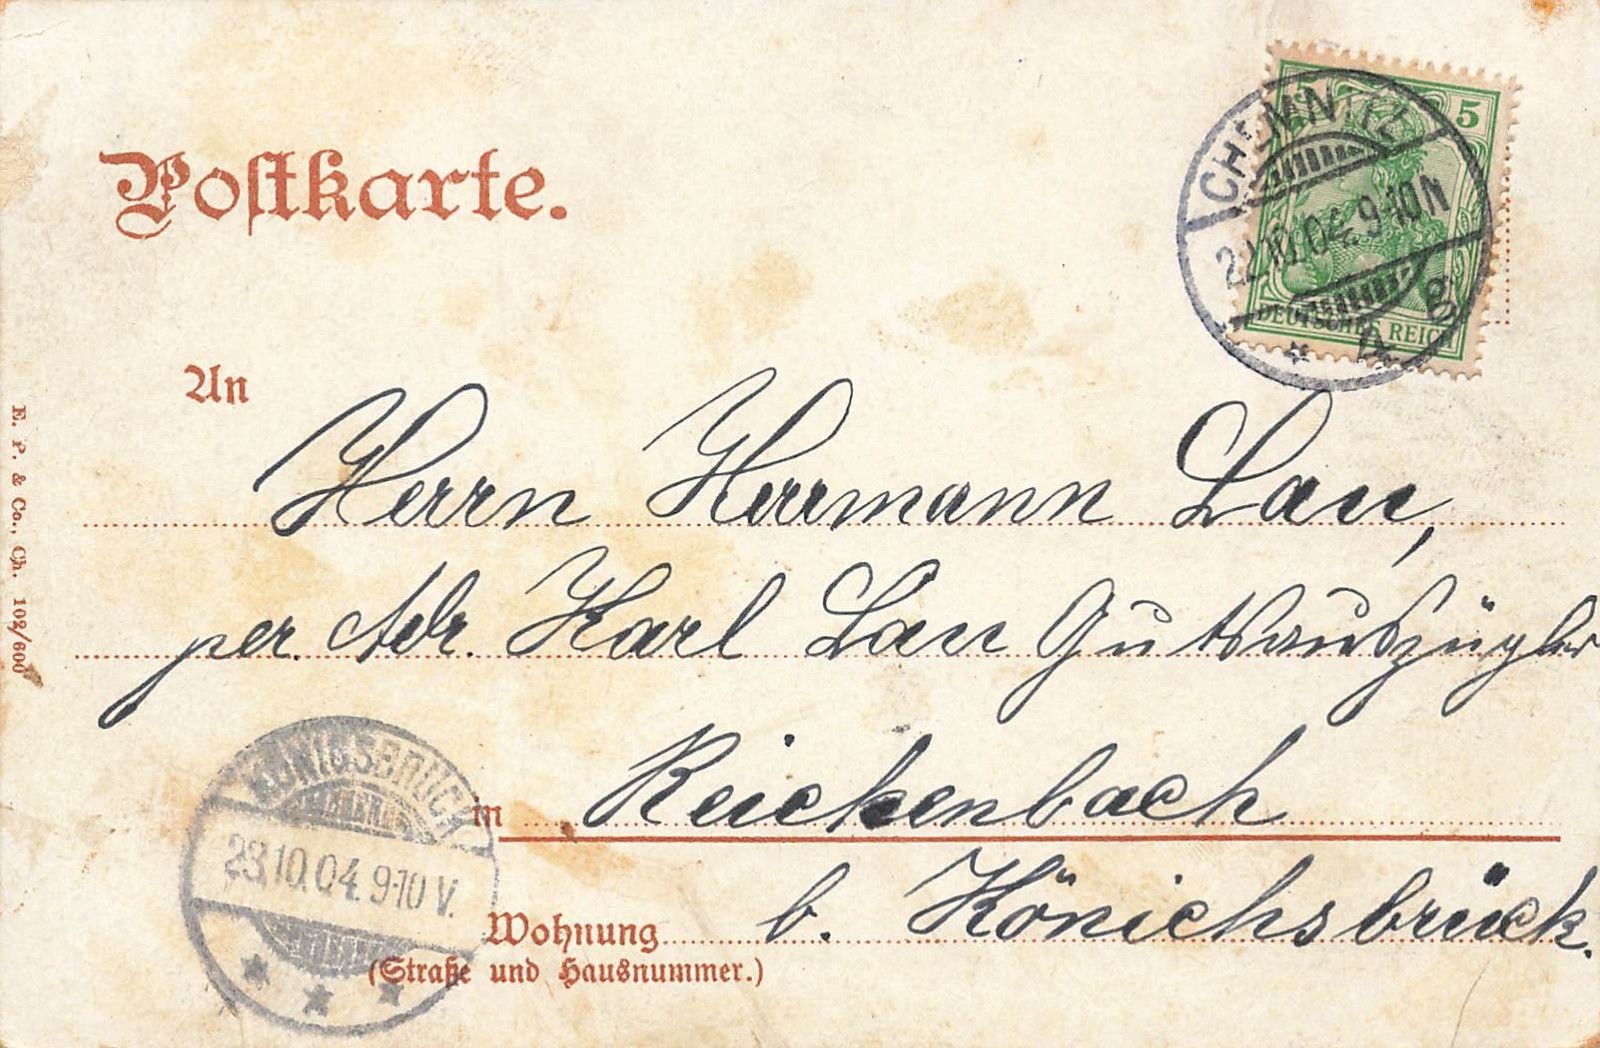 Postkarte.
CHEMNITZ
22.10.04. 9-10 N
5
DEUTSCHES REICH
An
Herrn Herrmann Lau,
per. Adr. Karl Lau Gutsauszügler
in Reichenbach
b. Könichsbrück.
Wohnung
(Straße und Hausnummer.)
KÖNIGSBRÜCK
23.10.04. 9-10 V.
E. P. & Co., Ch. 102/600